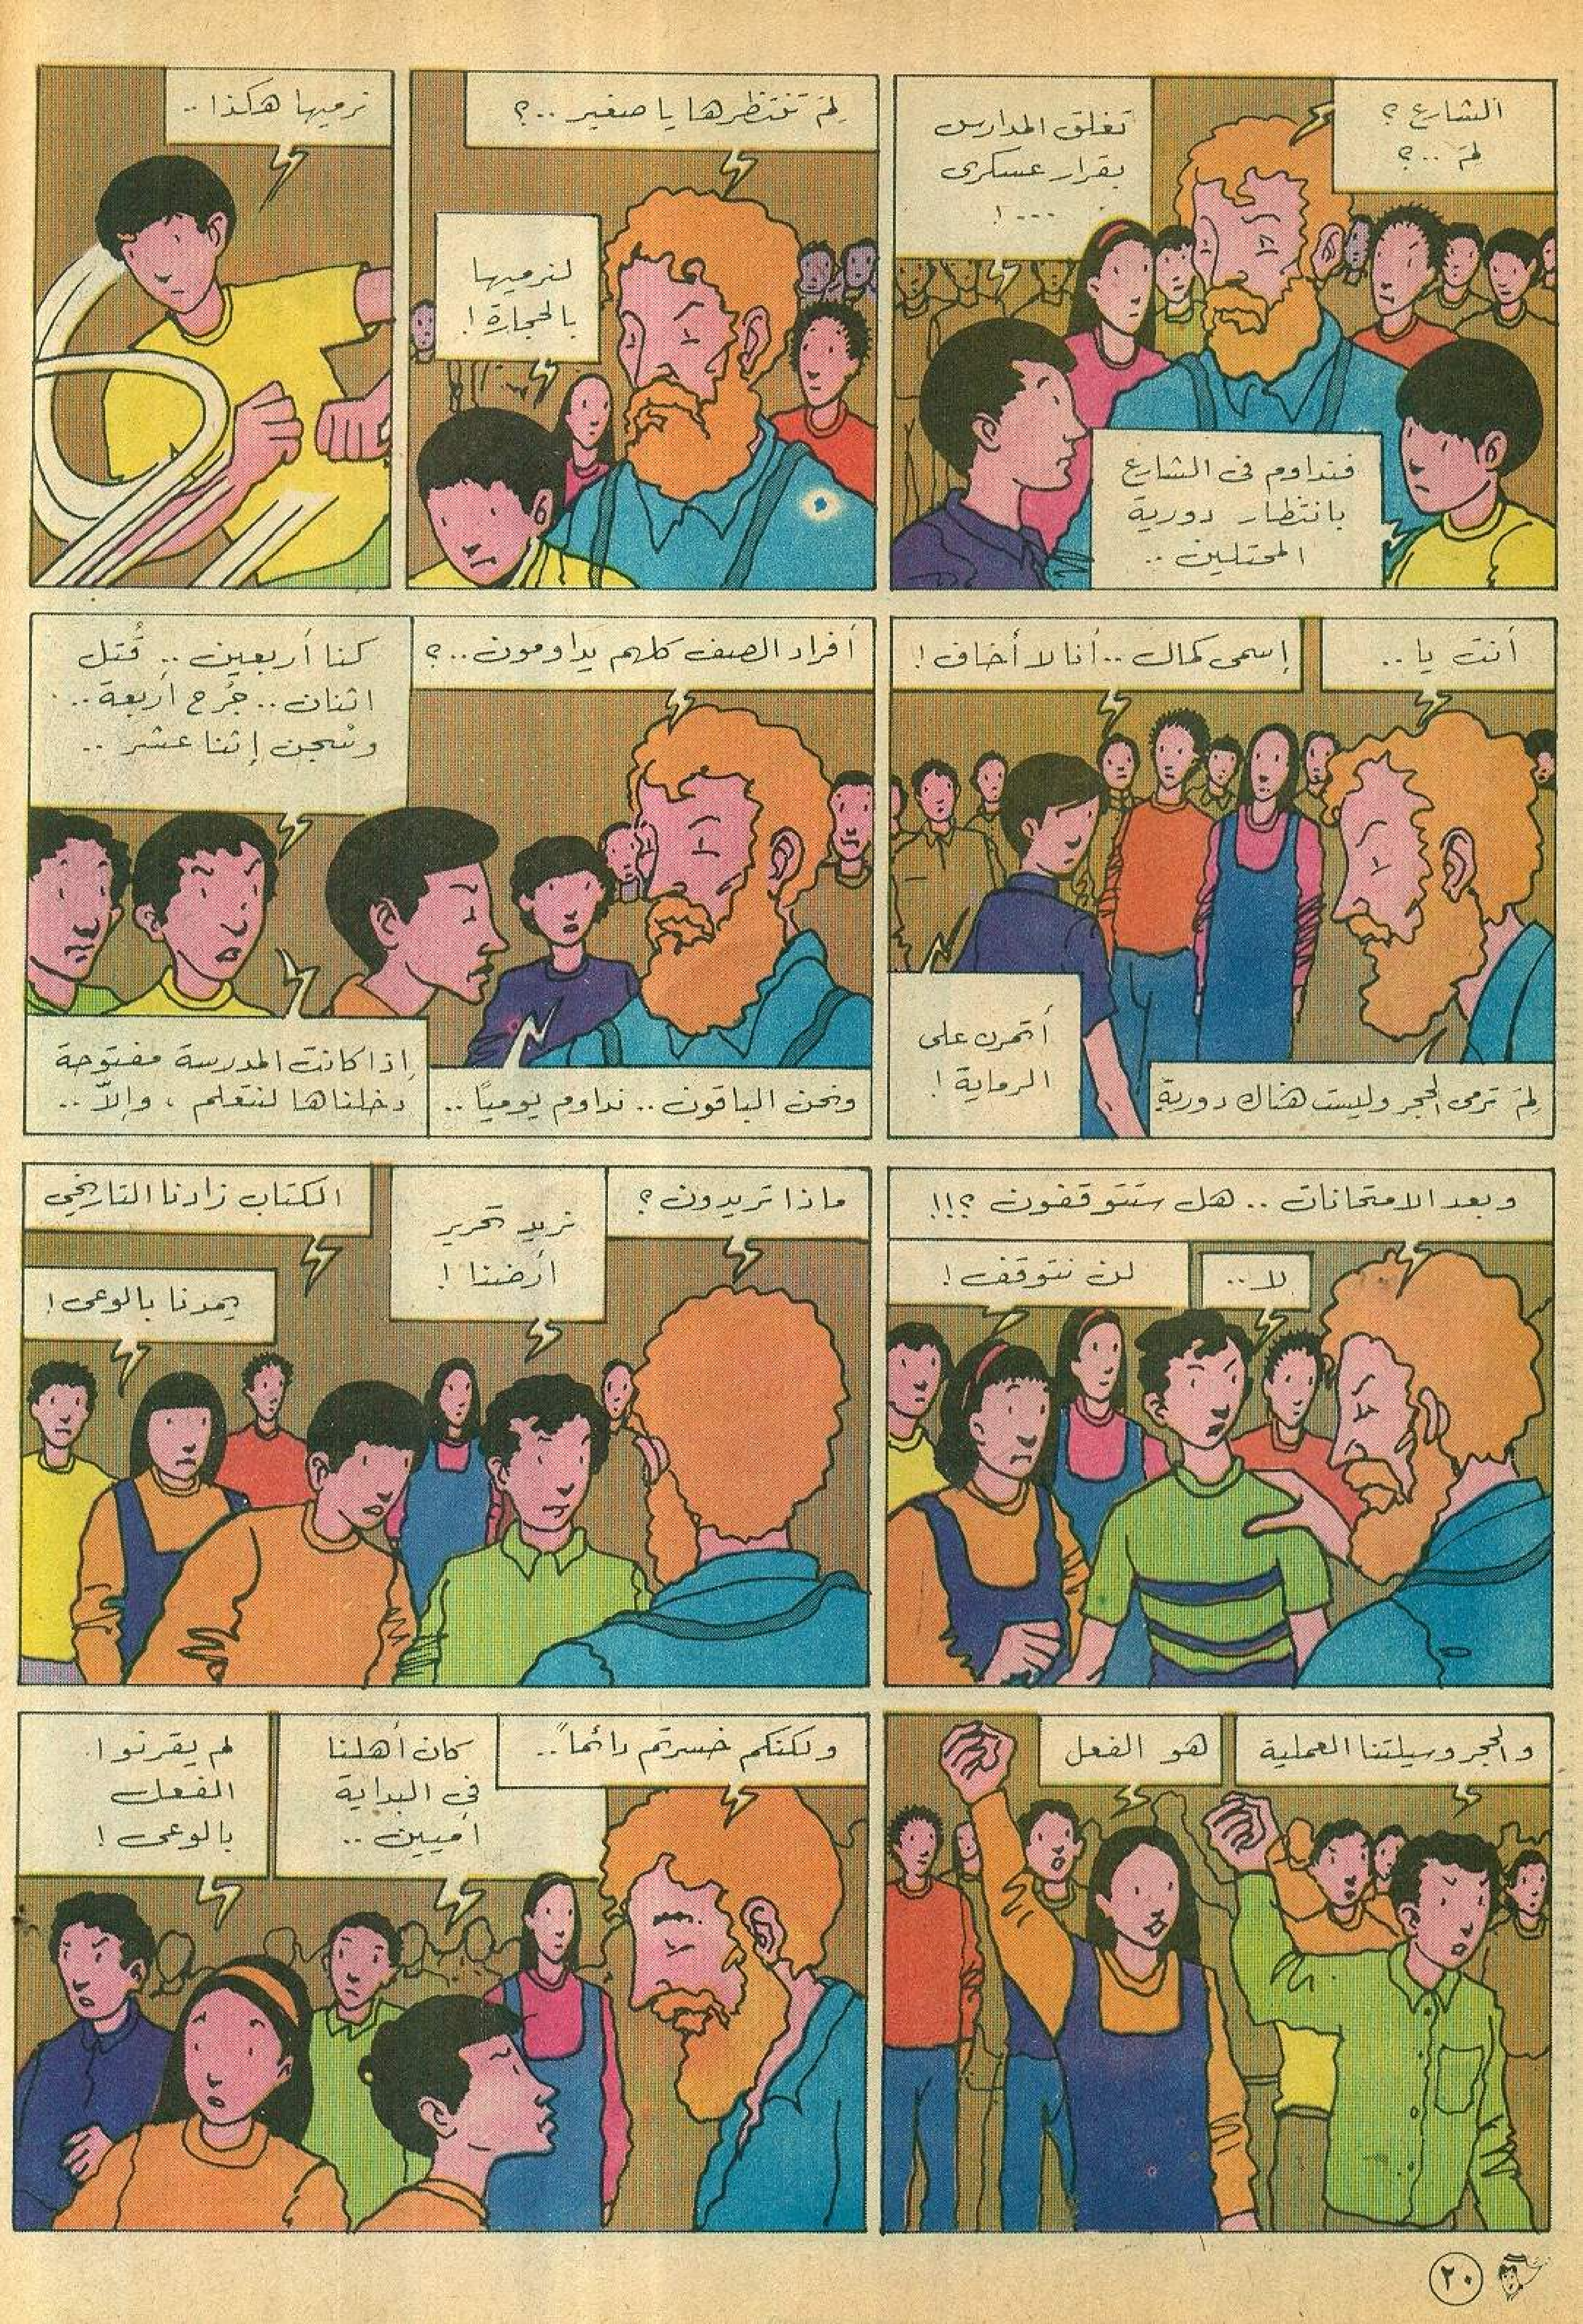 الشارع ؟
لِمَ ..؟
تغلق المدارس
بقرار عسكرى
...!
فنداوم فى الشارع
بانتظار دورية
المحتلين ..
لِمَ تنتظرها يا صغير ..؟
لنرميها
بالحجارة !
نرميها هكذا ..
أنت يا ..
إسمى كمال .. أنا لا أخاف !
لِمَ ترمى الحجر وليست هناك دورية
أتمرن على
الرماية !
أفراد الصف كلهم يداومون ..؟
كنا أربعين .. قُتل
اثنان .. جُرح أربعة ..
وسُجن إثنا عشر ..
ونحن الباقون .. نداوم يومياً ..
إذا كانت المدرسة مفتوحة
دخلناها لنتعلم ، وإلاّ ..
وبعد الامتحانات .. هل ستتوقفون ؟!!
لا ..
لن نتوقف !
ماذا تريدون ؟
نريد تحرير
أرضنا !
الكتاب زادنا التاريخى
يمدنا بالوعى !
والحجر وسيلتنا العملية
هو الفعل
ولكنكم خسرتم دائماً ..
كان أهلنا
فى البداية
أميين ..
لم يقرنوا
الفعل
بالوعى !
٢٠